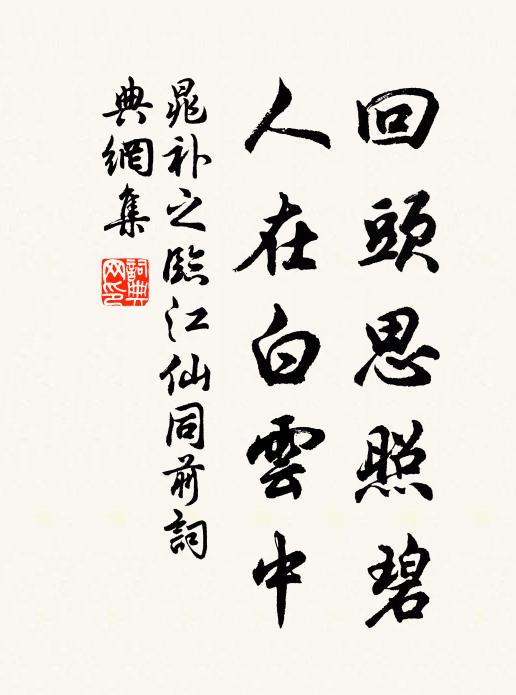 回頭思照碧
人在白雲中
晁补之臨江仙同前詞
典網集
詞典
网印